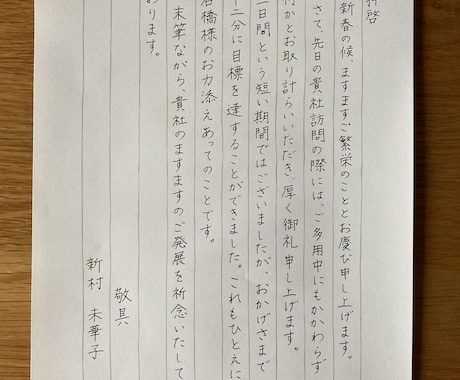 拝啓
新春の候、ますますご繁栄のこととお慶び申し上げます。
さて、先日の貴社訪問の際には、ご多用中にもかかわらず
何かとお取り計らいいただき、厚く御礼申し上げます。
二日間という短い期間ではございましたが、おかげさまで
十二分に目標を達することができました。これもひとえに
石橋様のお力添えあってのことです。
末筆ながら、貴社のますますのご発展を祈念いたして
おります。
敬具
新村 未華子